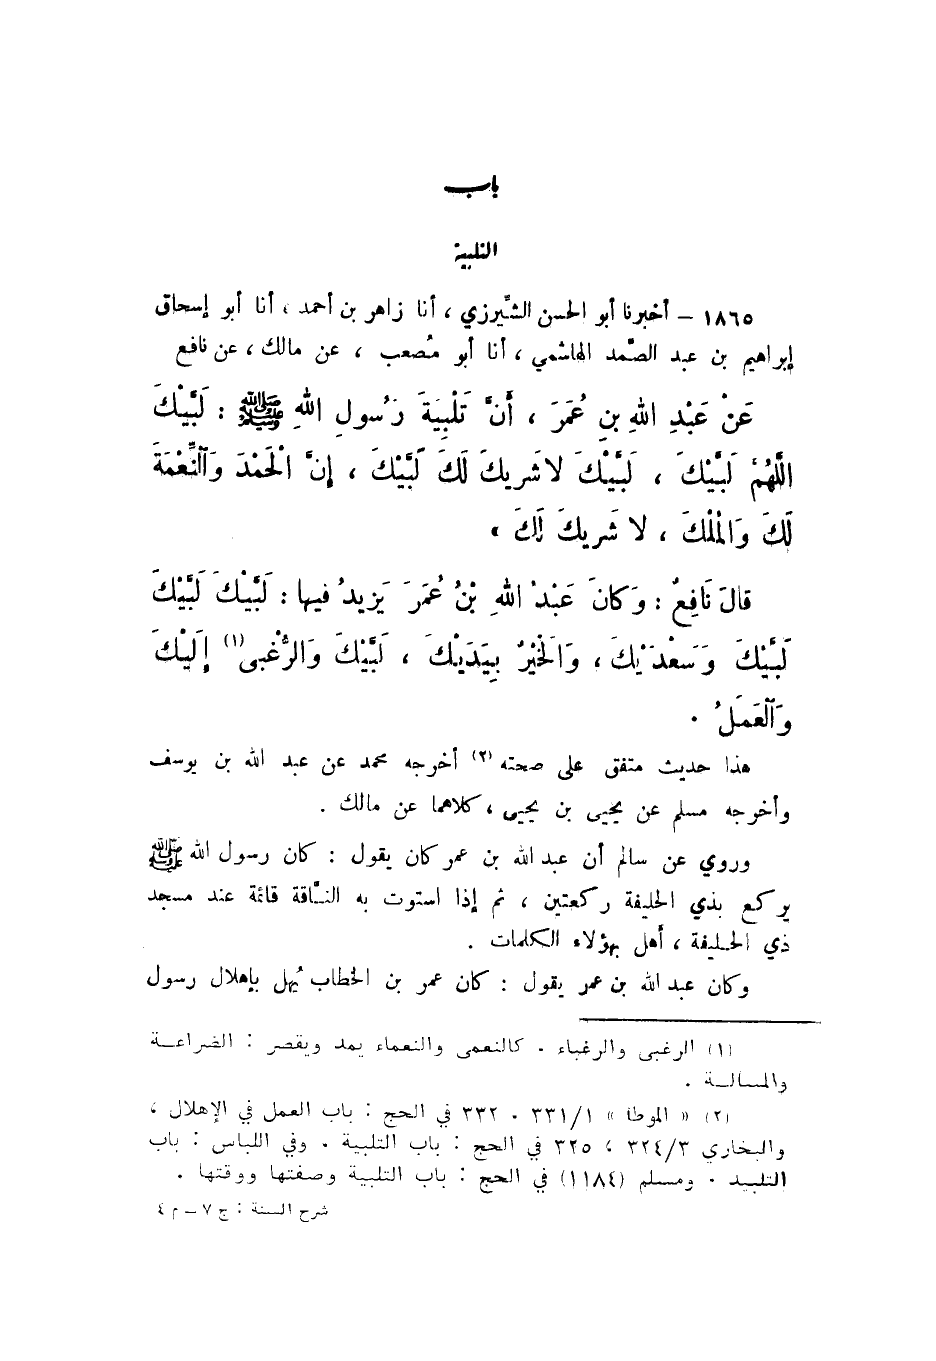 باب
التلبية
١٨٦٥ – أخبرنا أبو الحسن الشّيرزي ، أنا زاهر بن أحمد ، أنا أبو إسحاق
إبراهيم بن عبد الصّمد الهاشمي ، أنا أبو مُصعب ، عن مالك ، عن نافع
عَنْ عَبْدِ اللهِ بنِ عُمَرَ ، أَنَّ تَلْبِيَةَ رَسُولِ اللهِ ﷺ : لَبَّيْكَ
اللَّهُمَّ لَبَّيْكَ ، لَبَّيْكَ لا شَرِيكَ لَكَ لَبَّيْكَ ، إِنَّ الْحَمْدَ وَالنِّعْمَةَ
لَكَ وَالْمُلْكَ ، لا شَرِيكَ لَكَ »
قالَ نَافِعٌ : وَكانَ عَبْدُ اللهِ بْنُ عُمَرَ يَزِيدُ فيها : لَبَّيْكَ لَبَّيْكَ
لَبَّيْكَ وَسَعْدَيْكَ ، وَالْخَيْرُ بِيَدَيْكَ ، لَبَّيْكَ وَالرُّغْبى (١) إِلَيْكَ
وَالْعَمَلُ .
هذا حديث متفق على صحته (٢) أخرجه محمد عن عبد الله بن يوسف
وأخرجه مسلم عن يحيى بن يحيى ، كلاهما عن مالك .
وروي عن سالم أن عبد الله بن عمر كان يقول : كان رسول الله ﷺ
يركع بذي الحليفة ركعتين ، ثم إذا استوت به النّاقة قائمة عند مسجد
ذي الحليفة ، أهل بهؤلاء الكلمات .
وكان عبد الله بن عمر يقول : كان عمر بن الخطاب يُهل بإهلال رسول
(١) الرغبى والرغباء . كالنعمى والنعماء يمد ويقصر : الضراعة
والمسألة .
(٢) « الموطأ » ٣٣١/١ . ٣٣٢ في الحج : باب العمل في الإهلال ،
والبخاري ٣٢٤/٣ ، ٣٢٥ في الحج : باب التلبية . وفي اللباس : باب
التلبيد . ومسلم (١١٨٤) في الحج : باب التلبية وصفتها ووقتها .
شرح السنة : ج ٧ – م ٤